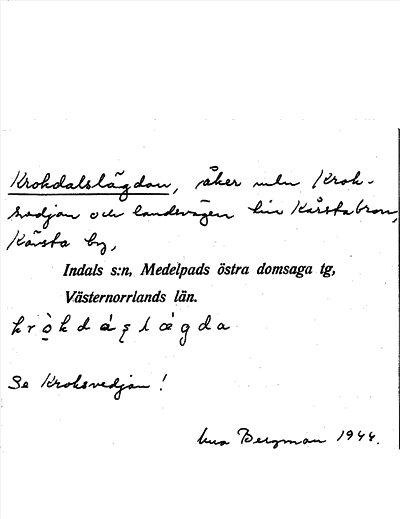 Krokdalslägdan, åker mln Krok-
svedjan och landsvägen t in Kårstabron,
Kårsta by,
Indals s:n, Medelpads östra domsaga tg,
Västernorrlands län.
krò̱kdáșlægda
Se Kroksvedjan!
Bergman 1944.